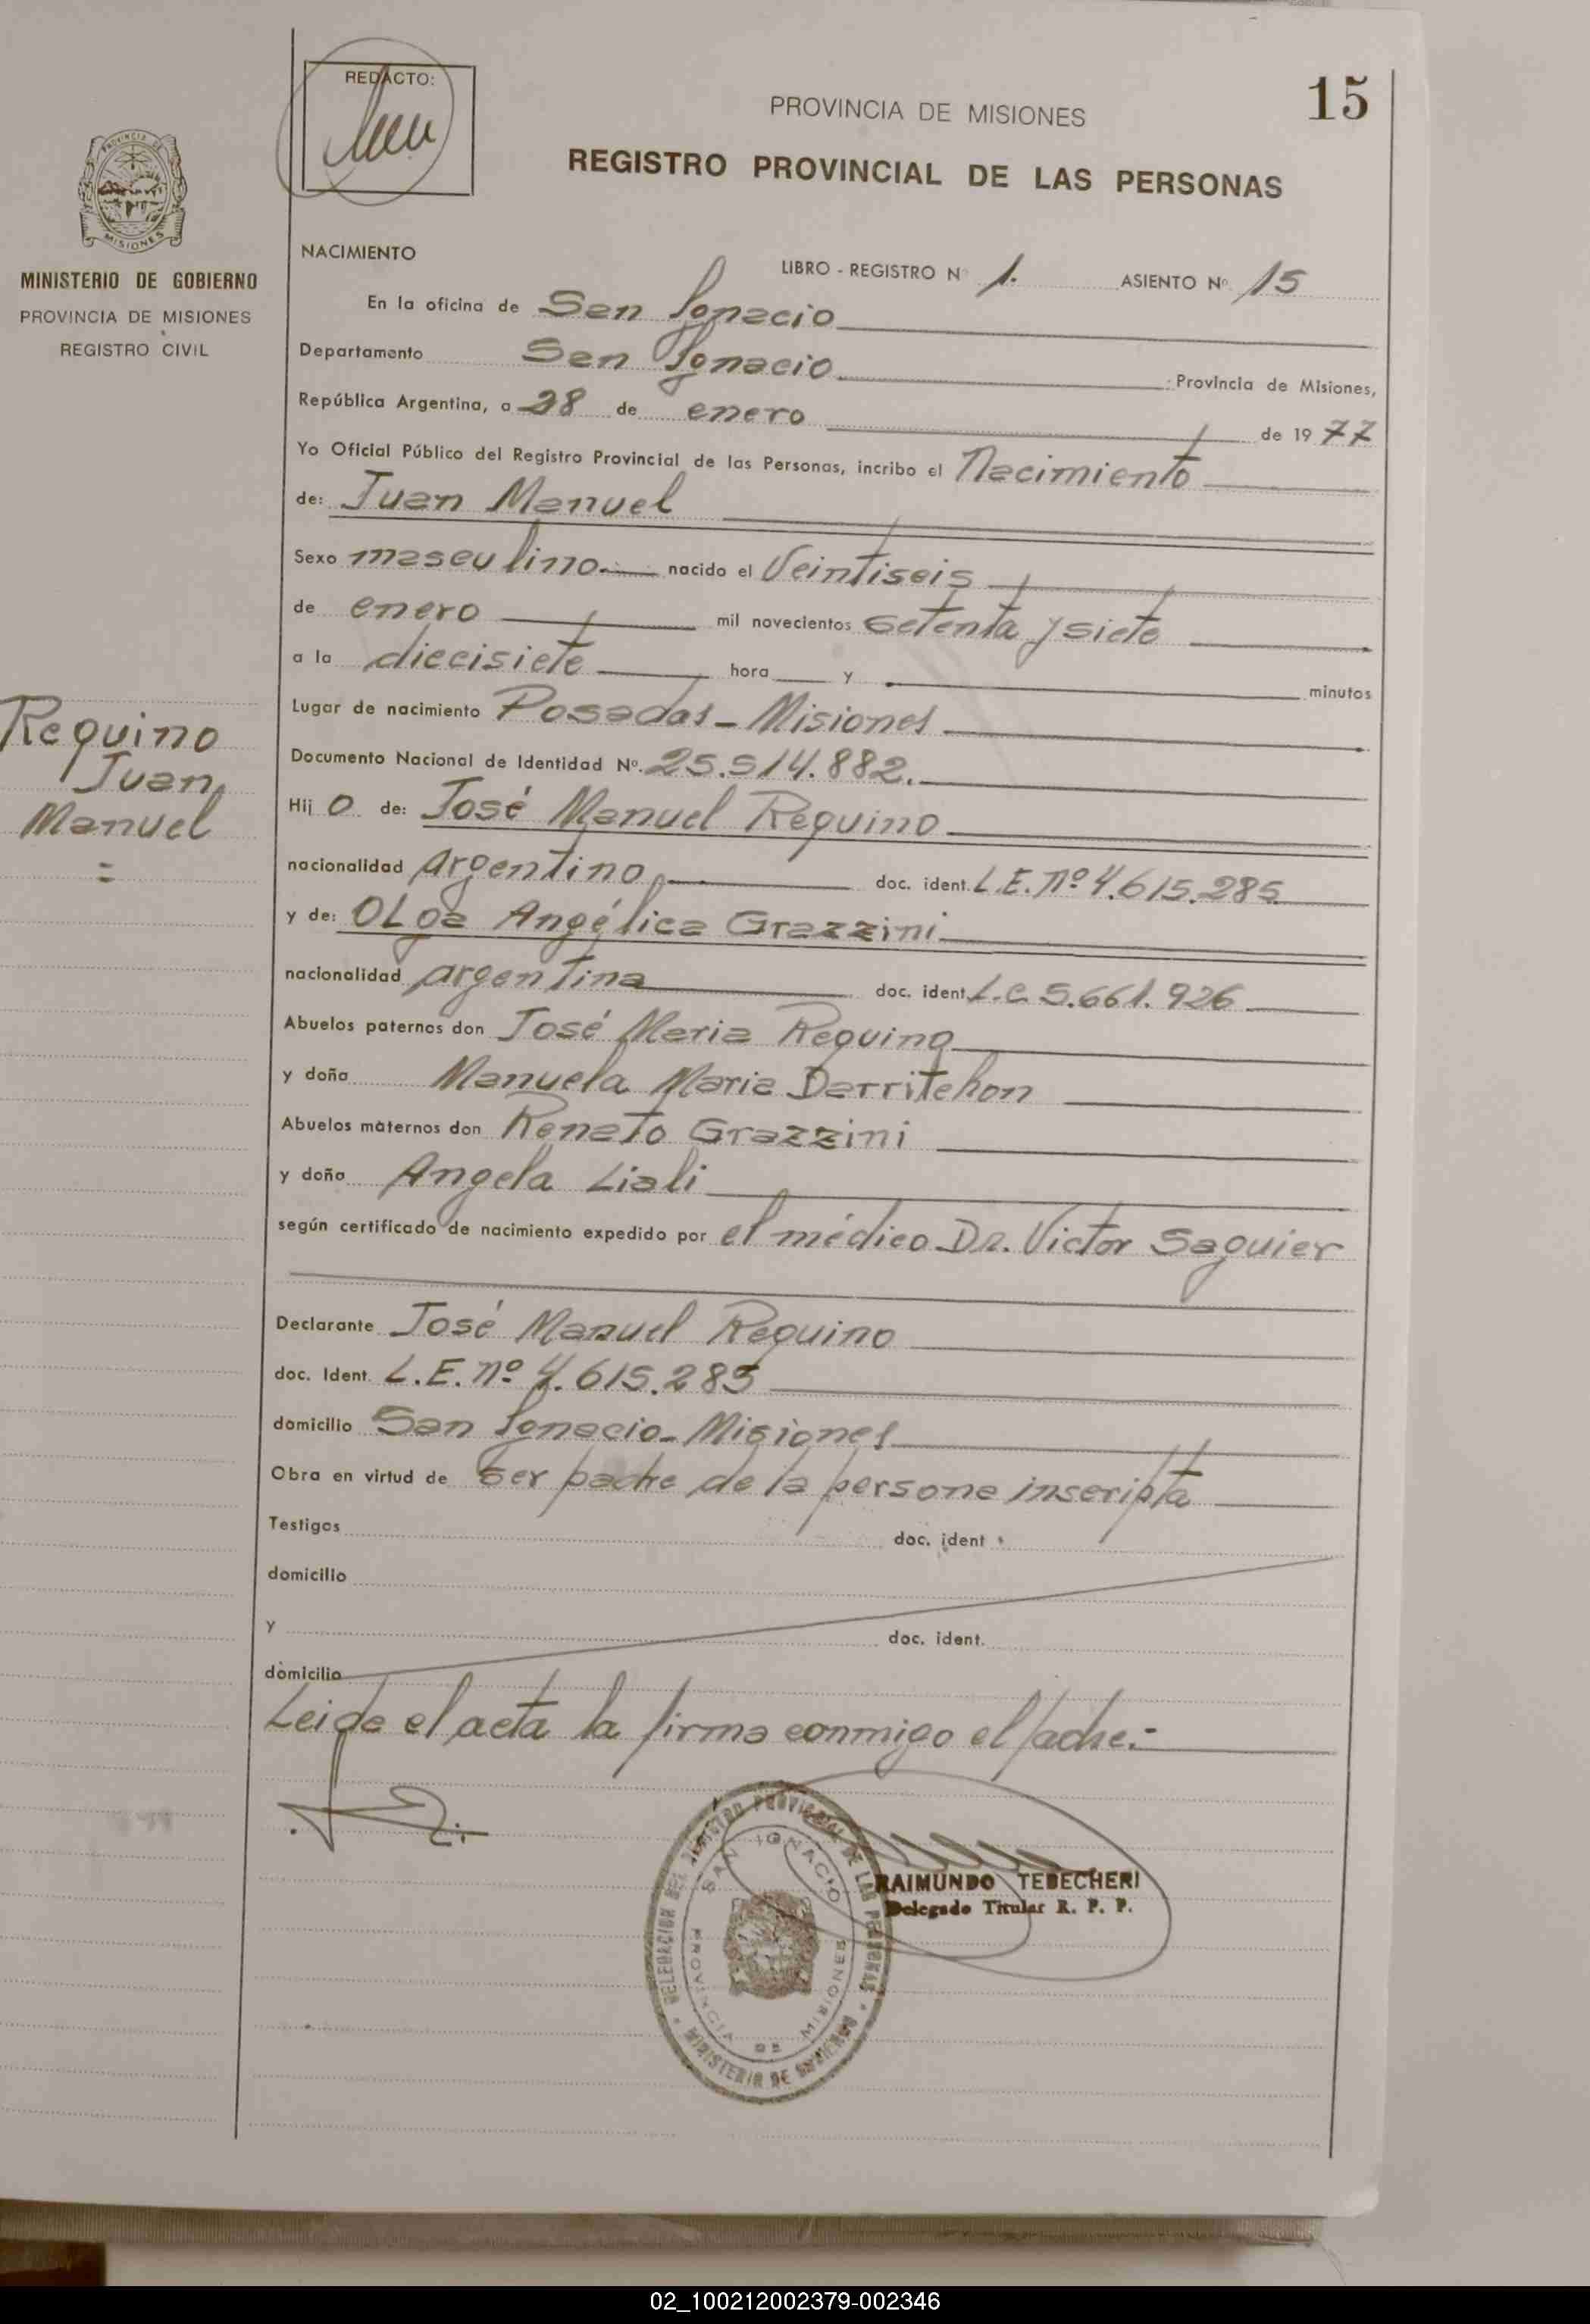 REDACTO:
PROVINCIA DE MISIONES
15
REGISTRO PROVINCIAL DE LAS PERSONAS
MISIONES
MINISTERIO DE GOBIERNO
PROVINCIA DE MISIONES
REGISTRO CIVIL
NACIMIENTO
LIBRO - REGISTRO Nº 1. ASIENTO Nº 15
En la oficina de San Ignacio
Departamento San Ignacio Provincia de Misiones,
República Argentina, a 28 de enero de 1977
Yo Oficial Público del Registro Provincial de las Personas, incribo el Nacimiento
de: Juan Manuel
Sexo masculino. nacido el Veintiseis
de enero mil novecientos setenta y siete
a la diecisiete hora y minutos
Lugar de nacimiento Posadas - Misiones
Documento Nacional de Identidad Nº. 25.514.882.
Requino
Juan
Manuel
=
Hij o de: José Manuel Requino
nacionalidad argentino doc. ident. L.E. nº 4.615.285
y de: Olga Angélica Grazzini
nacionalidad argentina doc. ident. L.C. 5.661.926
Abuelos paternos don José Maria Requino
y doña Manuela Maria Darritchon
Abuelos maternos don Renato Grazzini
y doña Angela Liali
según certificado de nacimiento expedido por el médico Dr. Victor Saguier
Declarante José Manuel Requino
doc. Ident. L.E. nº 4.615.285
domicilio San Ignacio - Misiones
Obra en virtud de ser padre de la persona inscripta
Testigos doc. ident
domicilio
y doc. ident.
domicilio
Leida el acta la firma conmigo el padre.-
DELEGACION DEL REGISTRO PROVINCIAL DE LAS PERSONAS
SAN IGNACIO
PROVINCIA DE MISIONES
MINISTERIO DE GOBIERNO
RAIMUNDO TEBECHERI
Delegado Titular R. P. P.
02_100212002379-002346